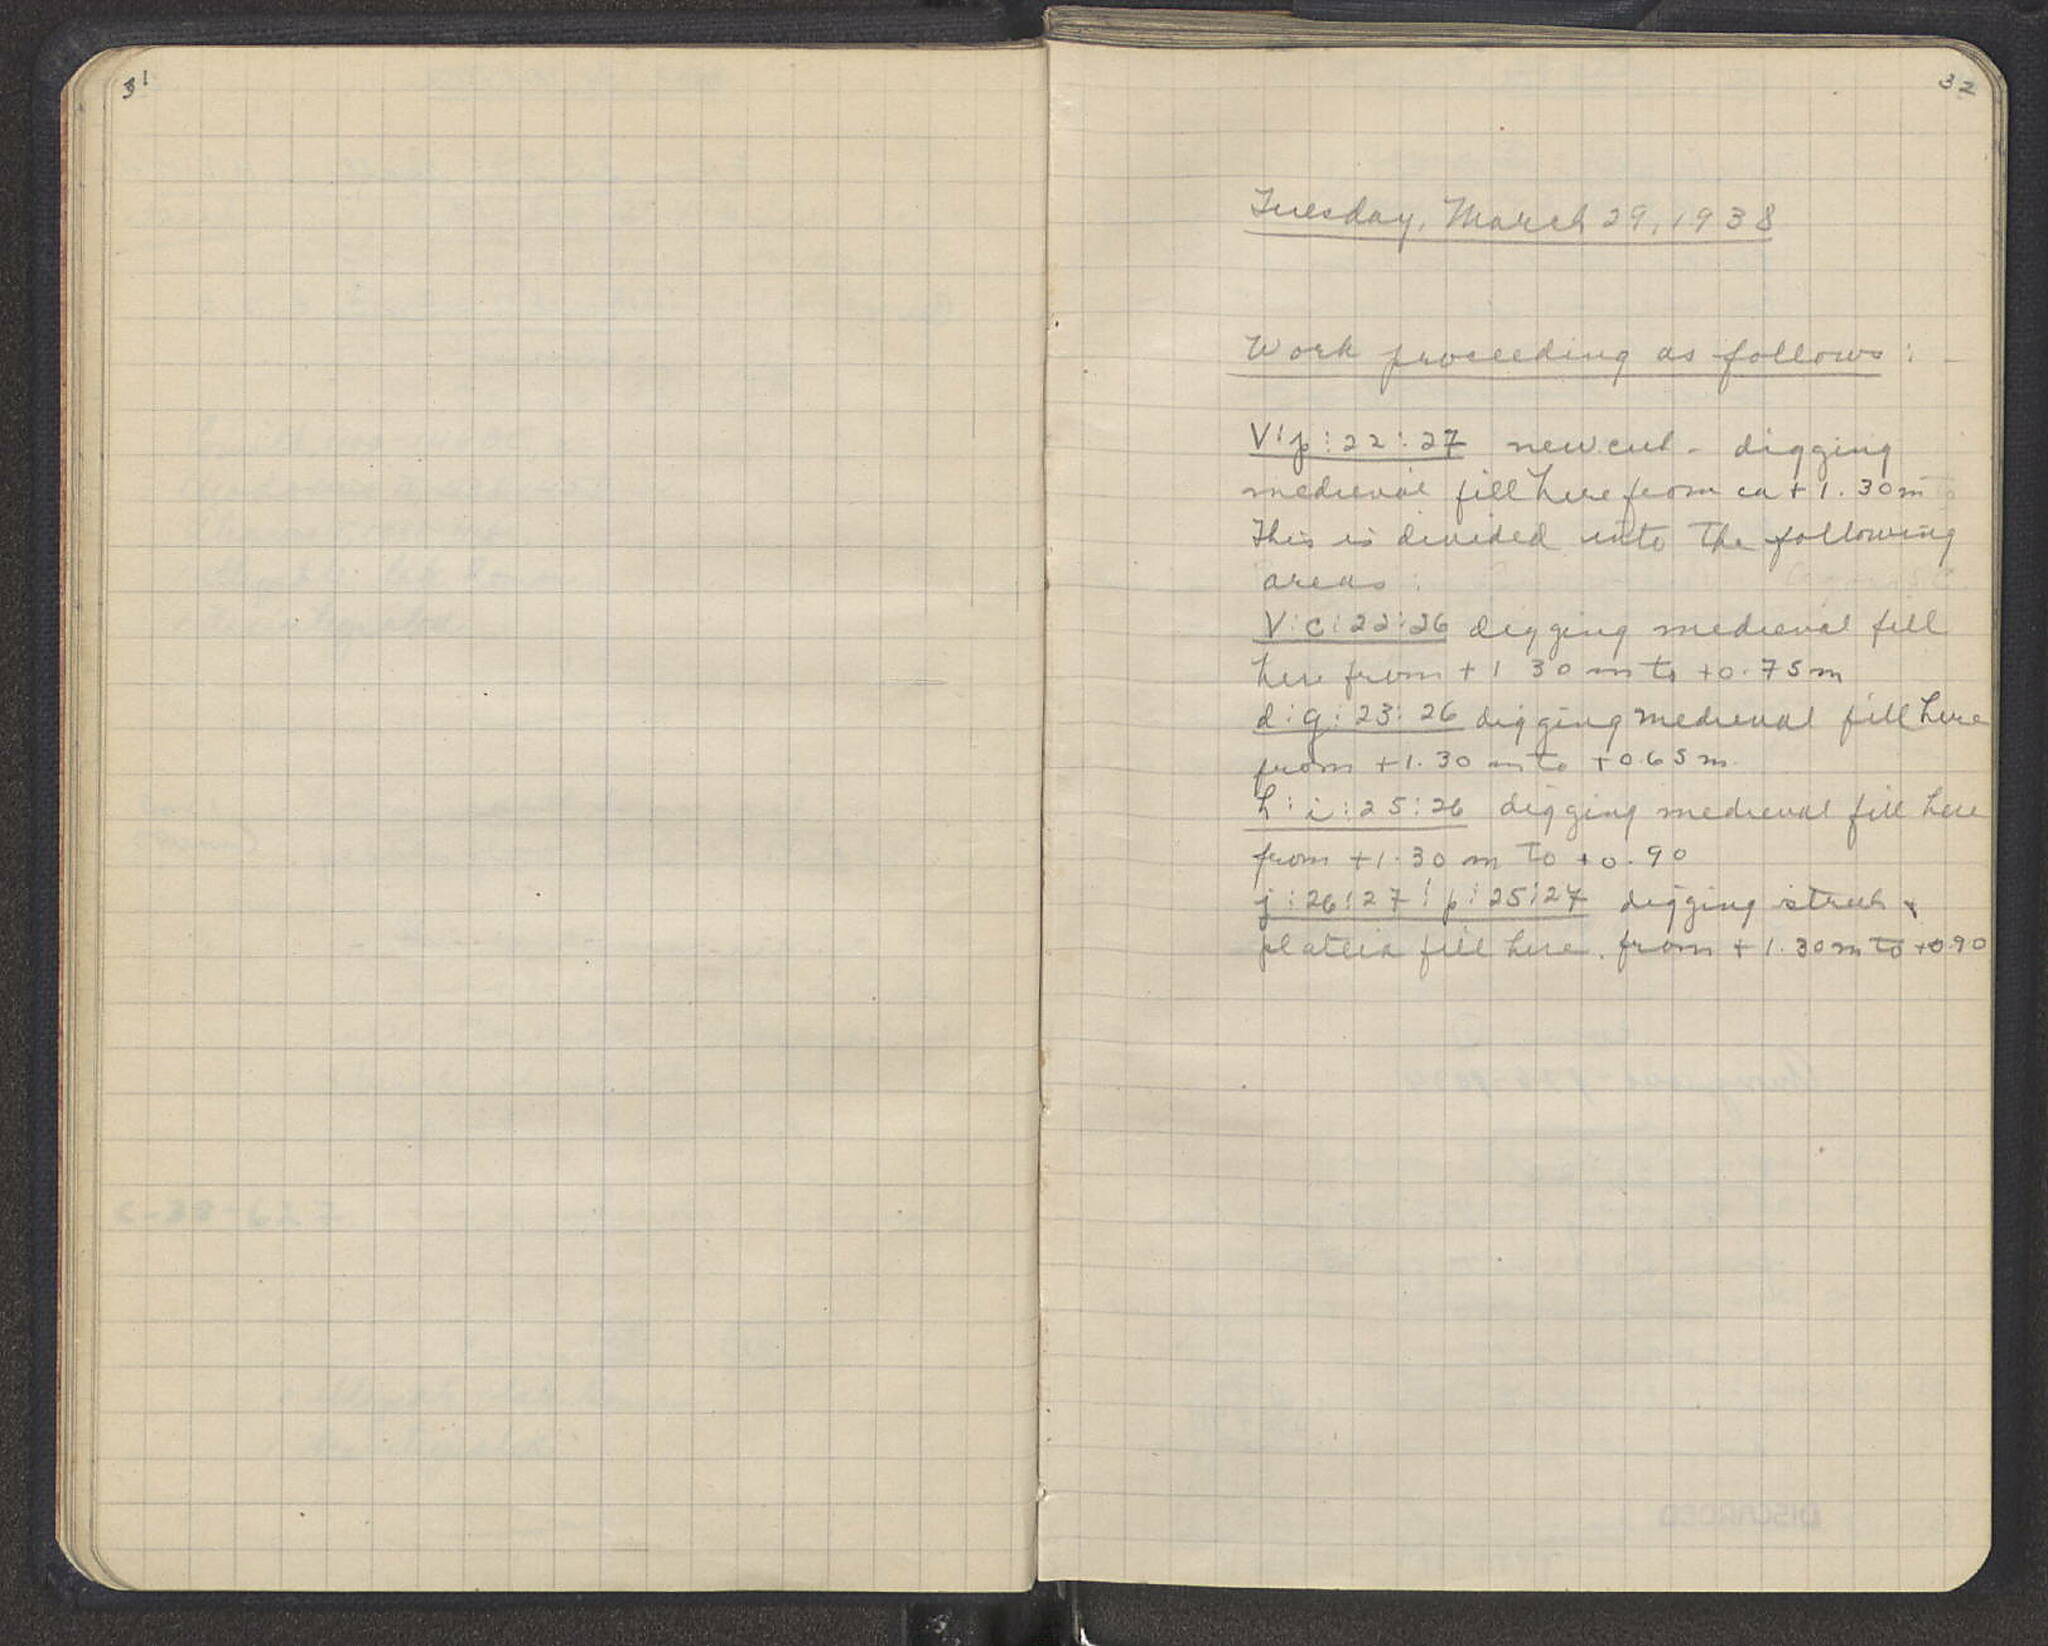 31
32
Tuesday, March 29, 1938
Work proceeding as follows:
V:p:22:27 new cut - digging
medieval fill here from ca + 1.30m
This is divided into the following
areas:
V:c:22:26 digging medieval fill
here from + 1 30 m to +0.75m
d:g:23:26 digging medieval fill here
from +1.30 m to +0.65 m.
h:i:25:26 digging medieval fill here
from +1.30 m to +0.90
j:26:27:p:25:27 digging street &
plateia fill here. from + 1.30m to +0.90
DISCARDED